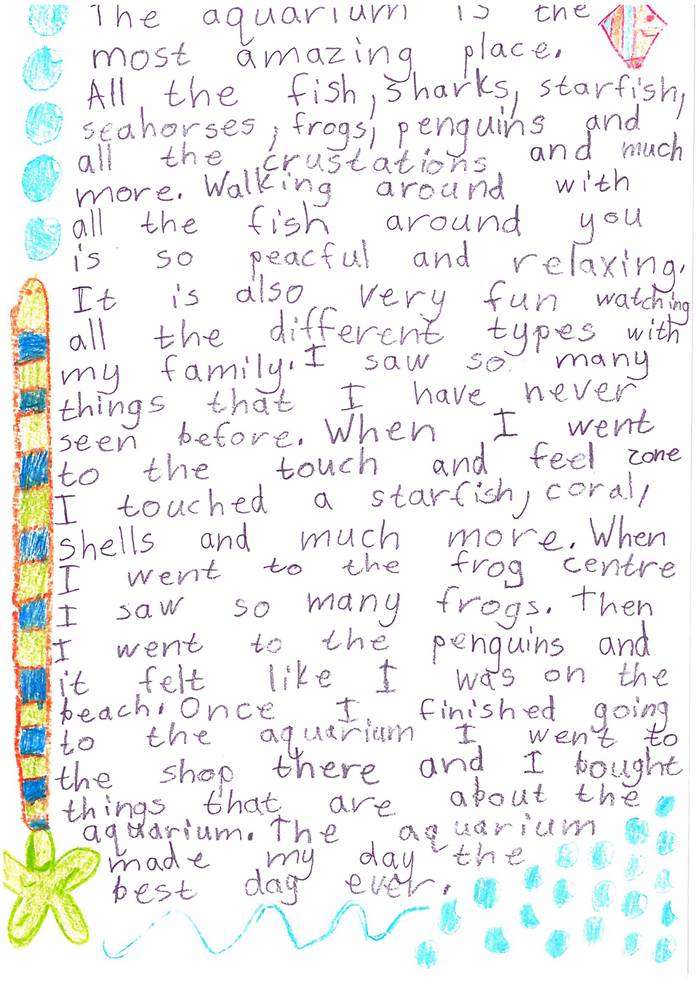 The aquarium is the
most amazing place.
All the fish, sharks, starfish,
seahorses, frogs, penguins and
all the crustations and much
more. Walking around with
all the fish around you
is so peacful and relaxing.
It is also very fun watching
all the different types with
my family. I saw so many
things that I have never
seen before. When I went
to the touch and feel zone
I touched a starfish, coral,
shells and much more. When
I went to the frog centre
I saw so many frogs. Then
I went to the penguins and
it felt like I was on the
beach. Once I finished going
to the aquarium I went to
the shop there and I bought
things that are about the
aquarium. The aquarium
made my day the
best day ever.